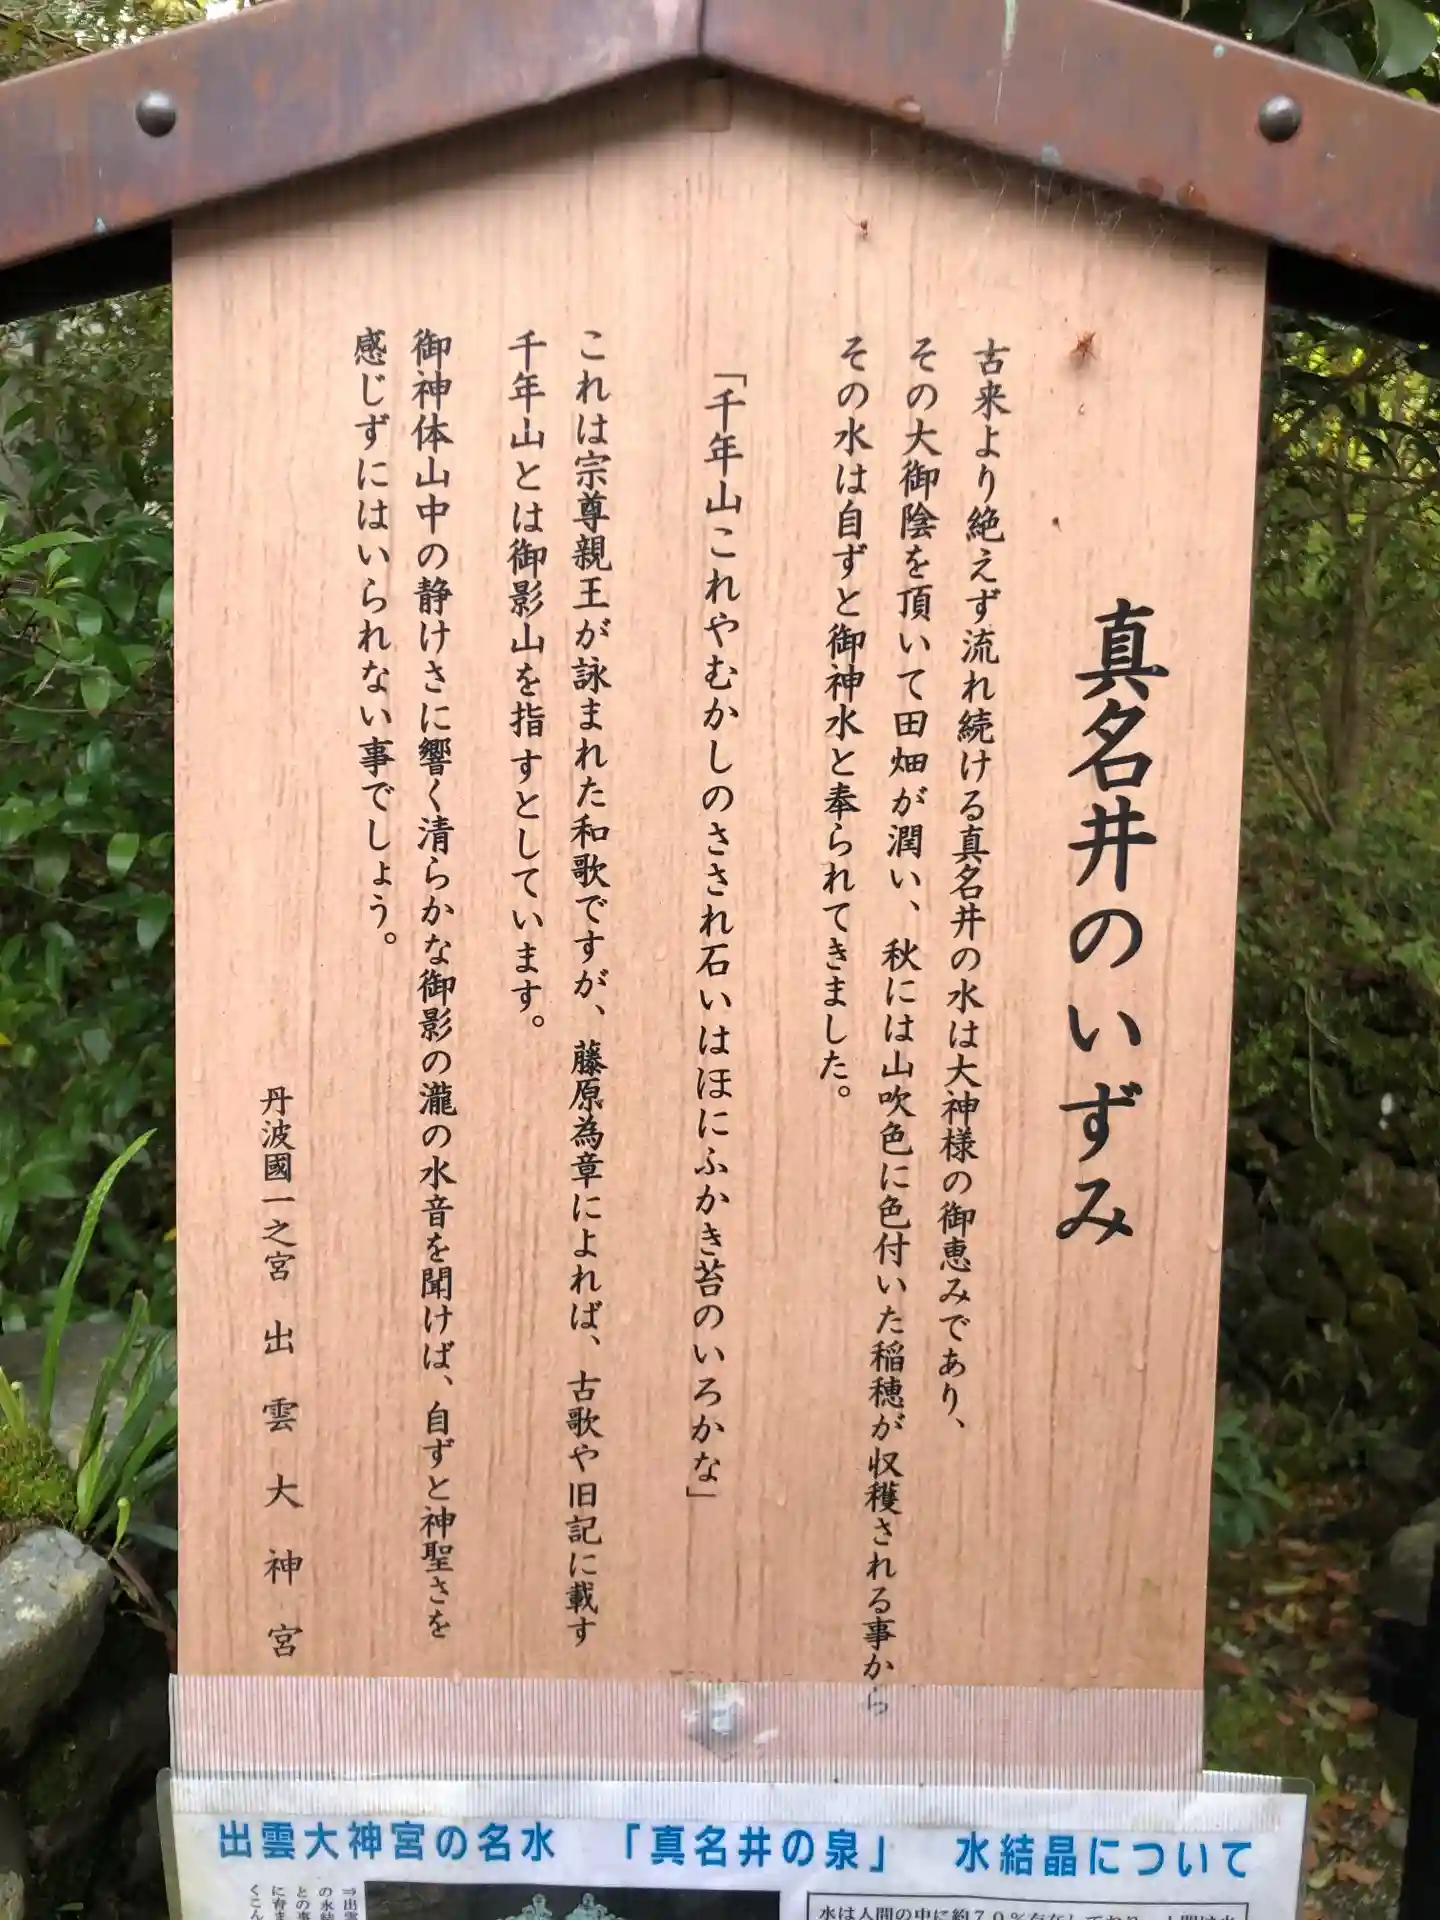 真名井のいずみ
古来より絶えず流れ続ける真名井の水は大神様の御恵みであり、
その大御陰を頂いて田畑が潤い、秋には山吹色に色付いた稲穂が収穫される事から
その水は自ずと御神水と奉られてきました。
「千年山これやむかしのさされ石いはほにふかき苔のいろかな」
これは宗尊親王が詠まれた和歌ですが、藤原為章によれば、古歌や旧記に載す
千年山とは御影山を指すとしています。
御神体山中の静けさに響く清らかな御影の瀧の水音を聞けば、自ずと神聖さを
感じずにはいられない事でしょう。
丹波國一之宮 出雲大神宮
出雲大神宮の名水 「真名井の泉」 水結晶について
⇒出雲
の水結
との事
に育ま
くこん